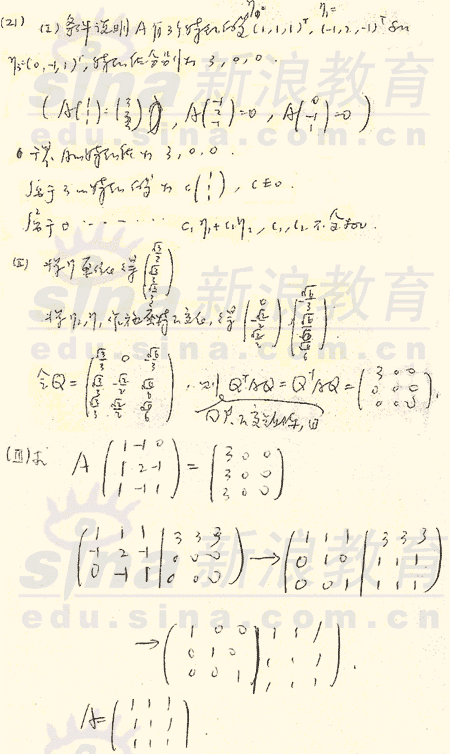 (21) (I) 条件说明 A 有3个特征向量 η₀=(1,1,1)ᵀ, η₁=(-1,2,-1)ᵀ
η₂=(0,-1,1)ᵀ, 特征值分别为 3,0,0.
( A(1 1 1)=(3 3 3), A(-1 2 -1)=0, A(0 -1 1)=0 )
于是 A 的特征值为 3,0,0.
属于3的特征向量为 c(1 1 1), c≠0.
属于0 …… c₁η₁+c₂η₂, c₁,c₂不全为0.
(II) 将η单位化得 (√3/3 √3/3 √3/3)
(0 -√2/2 √2/2), (-√6/3 √6/6 √6/6).
令 Q= (√3/3 0 -√6/3
√3/3 -√2/2 √6/6
√3/3 √2/2 √6/6) , 则 QᵀAQ=Q⁻¹AQ= (3 0 0
0 0 0
0 0 0).
(III)
A (1 -1 0
1 2 -1
1 -1 1) = (3 0 0
3 0 0
3 0 0)
(1 1 1 | 3 3 3
-1 2 -1 | 0 0 0
0 -1 1 | 0 0 0) → (1 1 1 | 3 3 3
0 1 0 | 1 1 1
0 0 1 | 1 1 1)
→ (1 0 0 | 1 1 1
0 1 0 | 1 1 1
0 0 1 | 1 1 1).
A= (1 1 1
1 1 1
1 1 1).
sina 新浪教育
edu.sina.com.cn
sina 新浪教育
edu.sina.com.cn
sina 新浪教育
edu.sina.com.cn
sina 新浪教育
edu.sina.com.cn